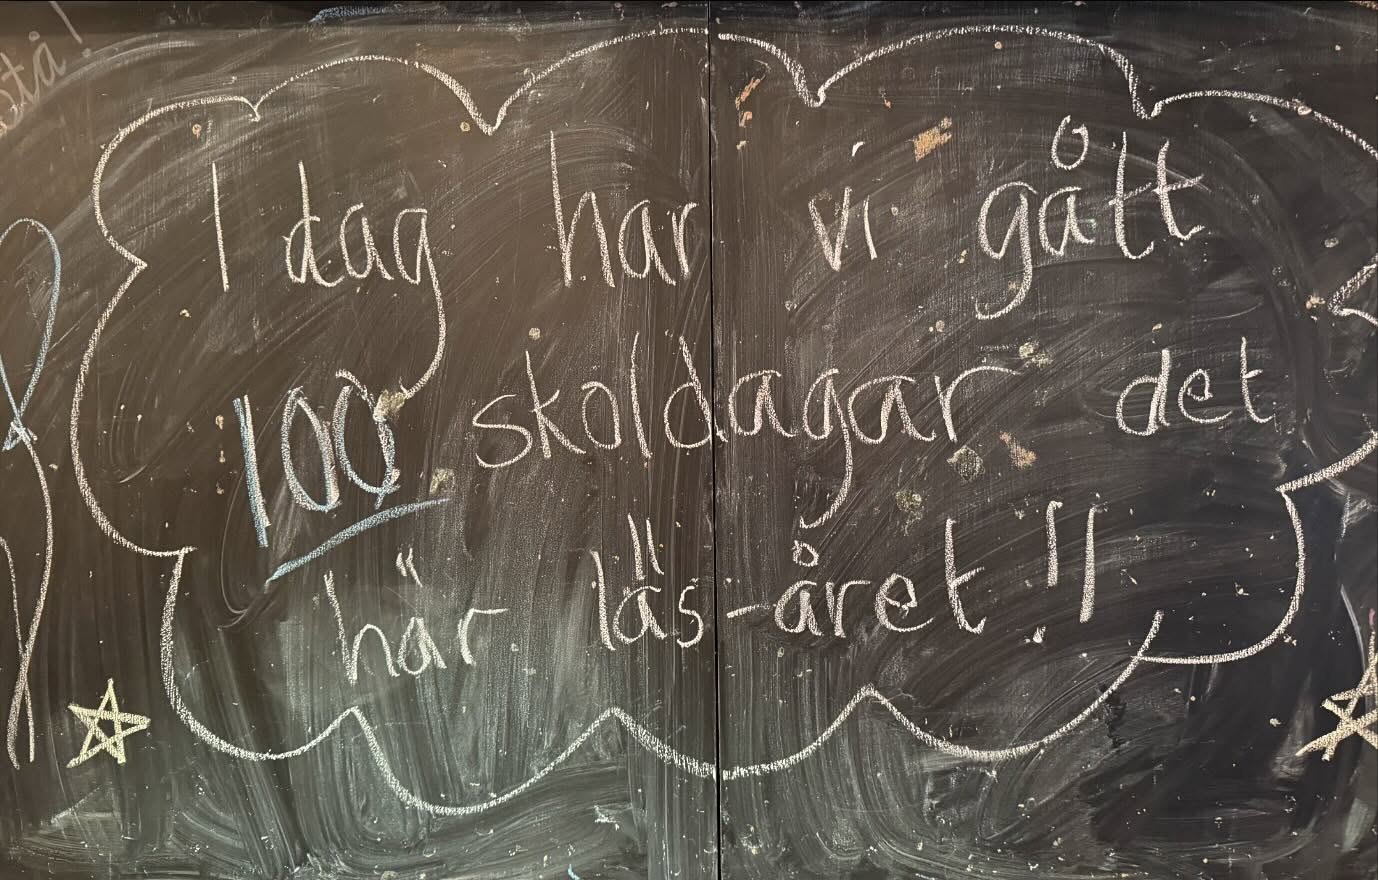 I dag har vi gått
100 skoldagar det
här läs-året!!